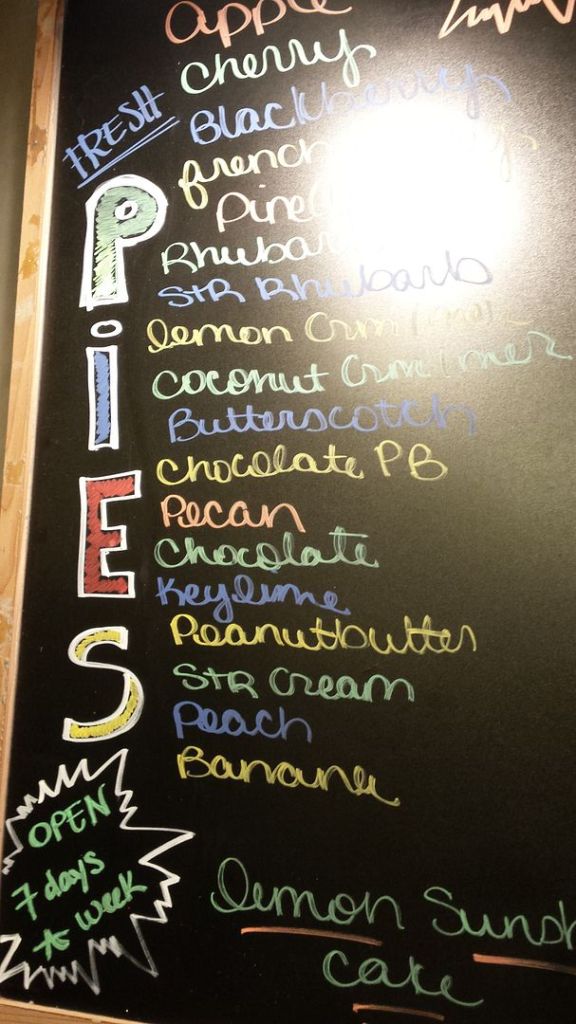 apple
Cherry
FRESH
Blackberry
french
PiES
Rhubarb
STR Rhubarb
lemon Crm/mer
Coconut Crm/mer
Butterscotch
Chocolate PB
Pecan
Chocolate
Keylime
Peanutbutter
STR Cream
Peach
Banana
OPEN
7 days
A week
lemon Sunsh
Cake